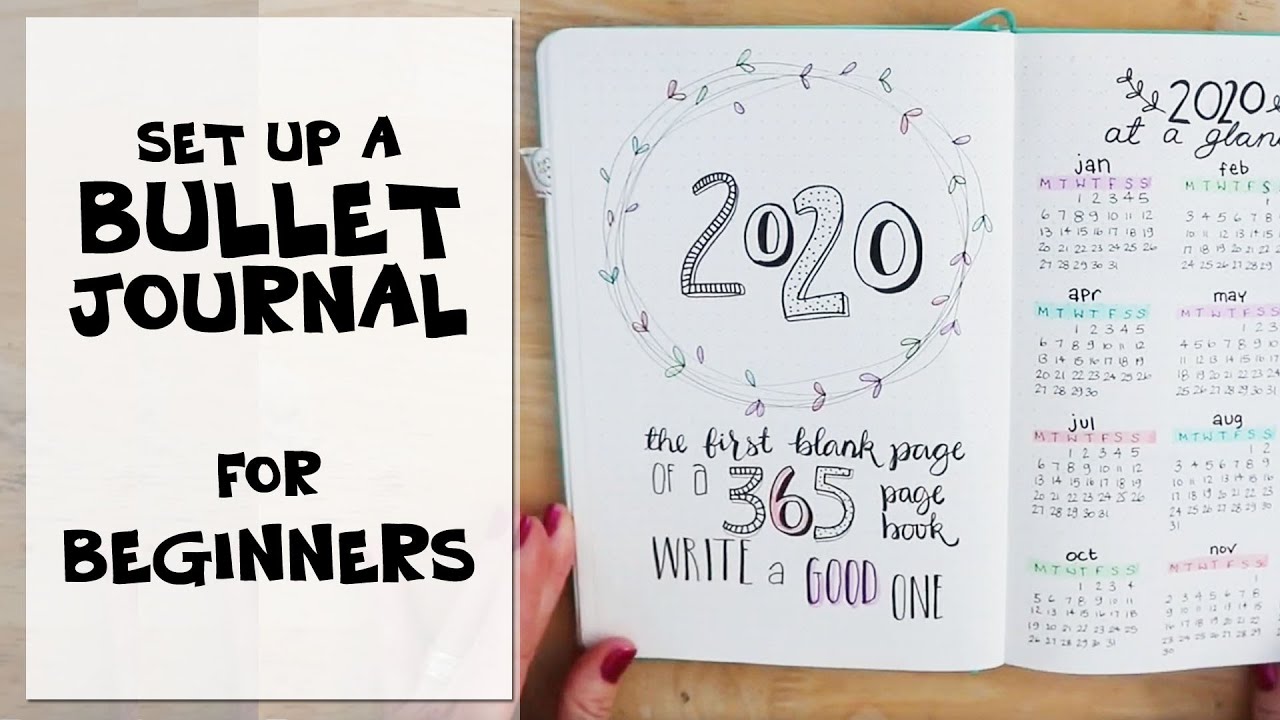 SET UP A
BULLET
JOURNAL
FOR
BEGINNERS
2020
the first blank page
OF a 365 page
book
WRITE a GOOD ONE
2020
at a glan
jan
M T W T F S S
1 2 3 4 5
6 7 8 9 10 11 12
13 14 15 16 17 18 19
20 21 22 23 24 25 26
27 28 29 30 31
feb
M T W T F S S
1
3 4 5 6 7 8
10 11 12 13 14 15
17 18 19 20 21 22
24 25 26 27 28 29
apr
M T W T F S S
1 2 3 4 5
6 7 8 9 10 11 12
13 14 15 16 17 18 19
20 21 22 23 24 25 26
27 28 29 30
may
M T W T F S S
1 2 3
4 5 6 7 8 9 10
11 12 13 14 15 16 17
18 19 20 21 22 23 24
25 26 27 28 29 30 31
jul
M T W T F S S
1 2 3 4 5
6 7 8 9 10 11 12
13 14 15 16 17 18 19
20 21 22 23 24 25 26
27 28 29 30 31
aug
M T W T F S S
1 2
3 4 5 6 7 8 9
10 11 12 13 14 15 16
17 18 19 20 21 22 23
24 25 26 27 28 29 30
31
oct
M T W T F S S
1 2 3 4
5 6 7 8 9 10 11
12 13 14 15 16 17 18
19 20 21 22 23 24 25
26 27 28 29 30 31
nov
M T W T F S S
1
2 3 4 5 6 7 8
9 10 11 12 13 14 15
16 17 18 19 20 21 22
23 24 25 26 27 28 29
30